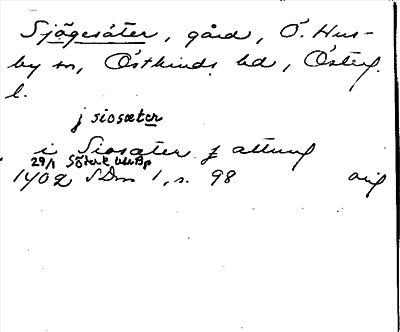 Sjögesäter, gård, Ö. Hus-
by sn, Östkinds hd, Österg.
l.
j siosæter
i Siosæter j attung
29/1
1402 SDm 1, s. 98 orig